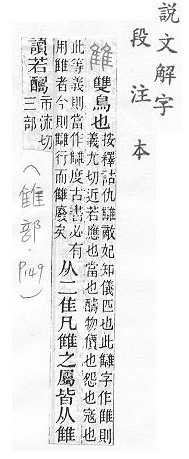 說文解字
段注本
雔 雙鳥也 按釋詁仇讎敵妃知儀匹也此讎字作雔則
義尤切近若應也當也醻物價也怨也寇也
此等義則當作讎度古書必有
用雔者今則讎行而雔廢矣 从二隹凡雔之屬皆从雔
讀若醻 市流切
三部
(雔部.P149)